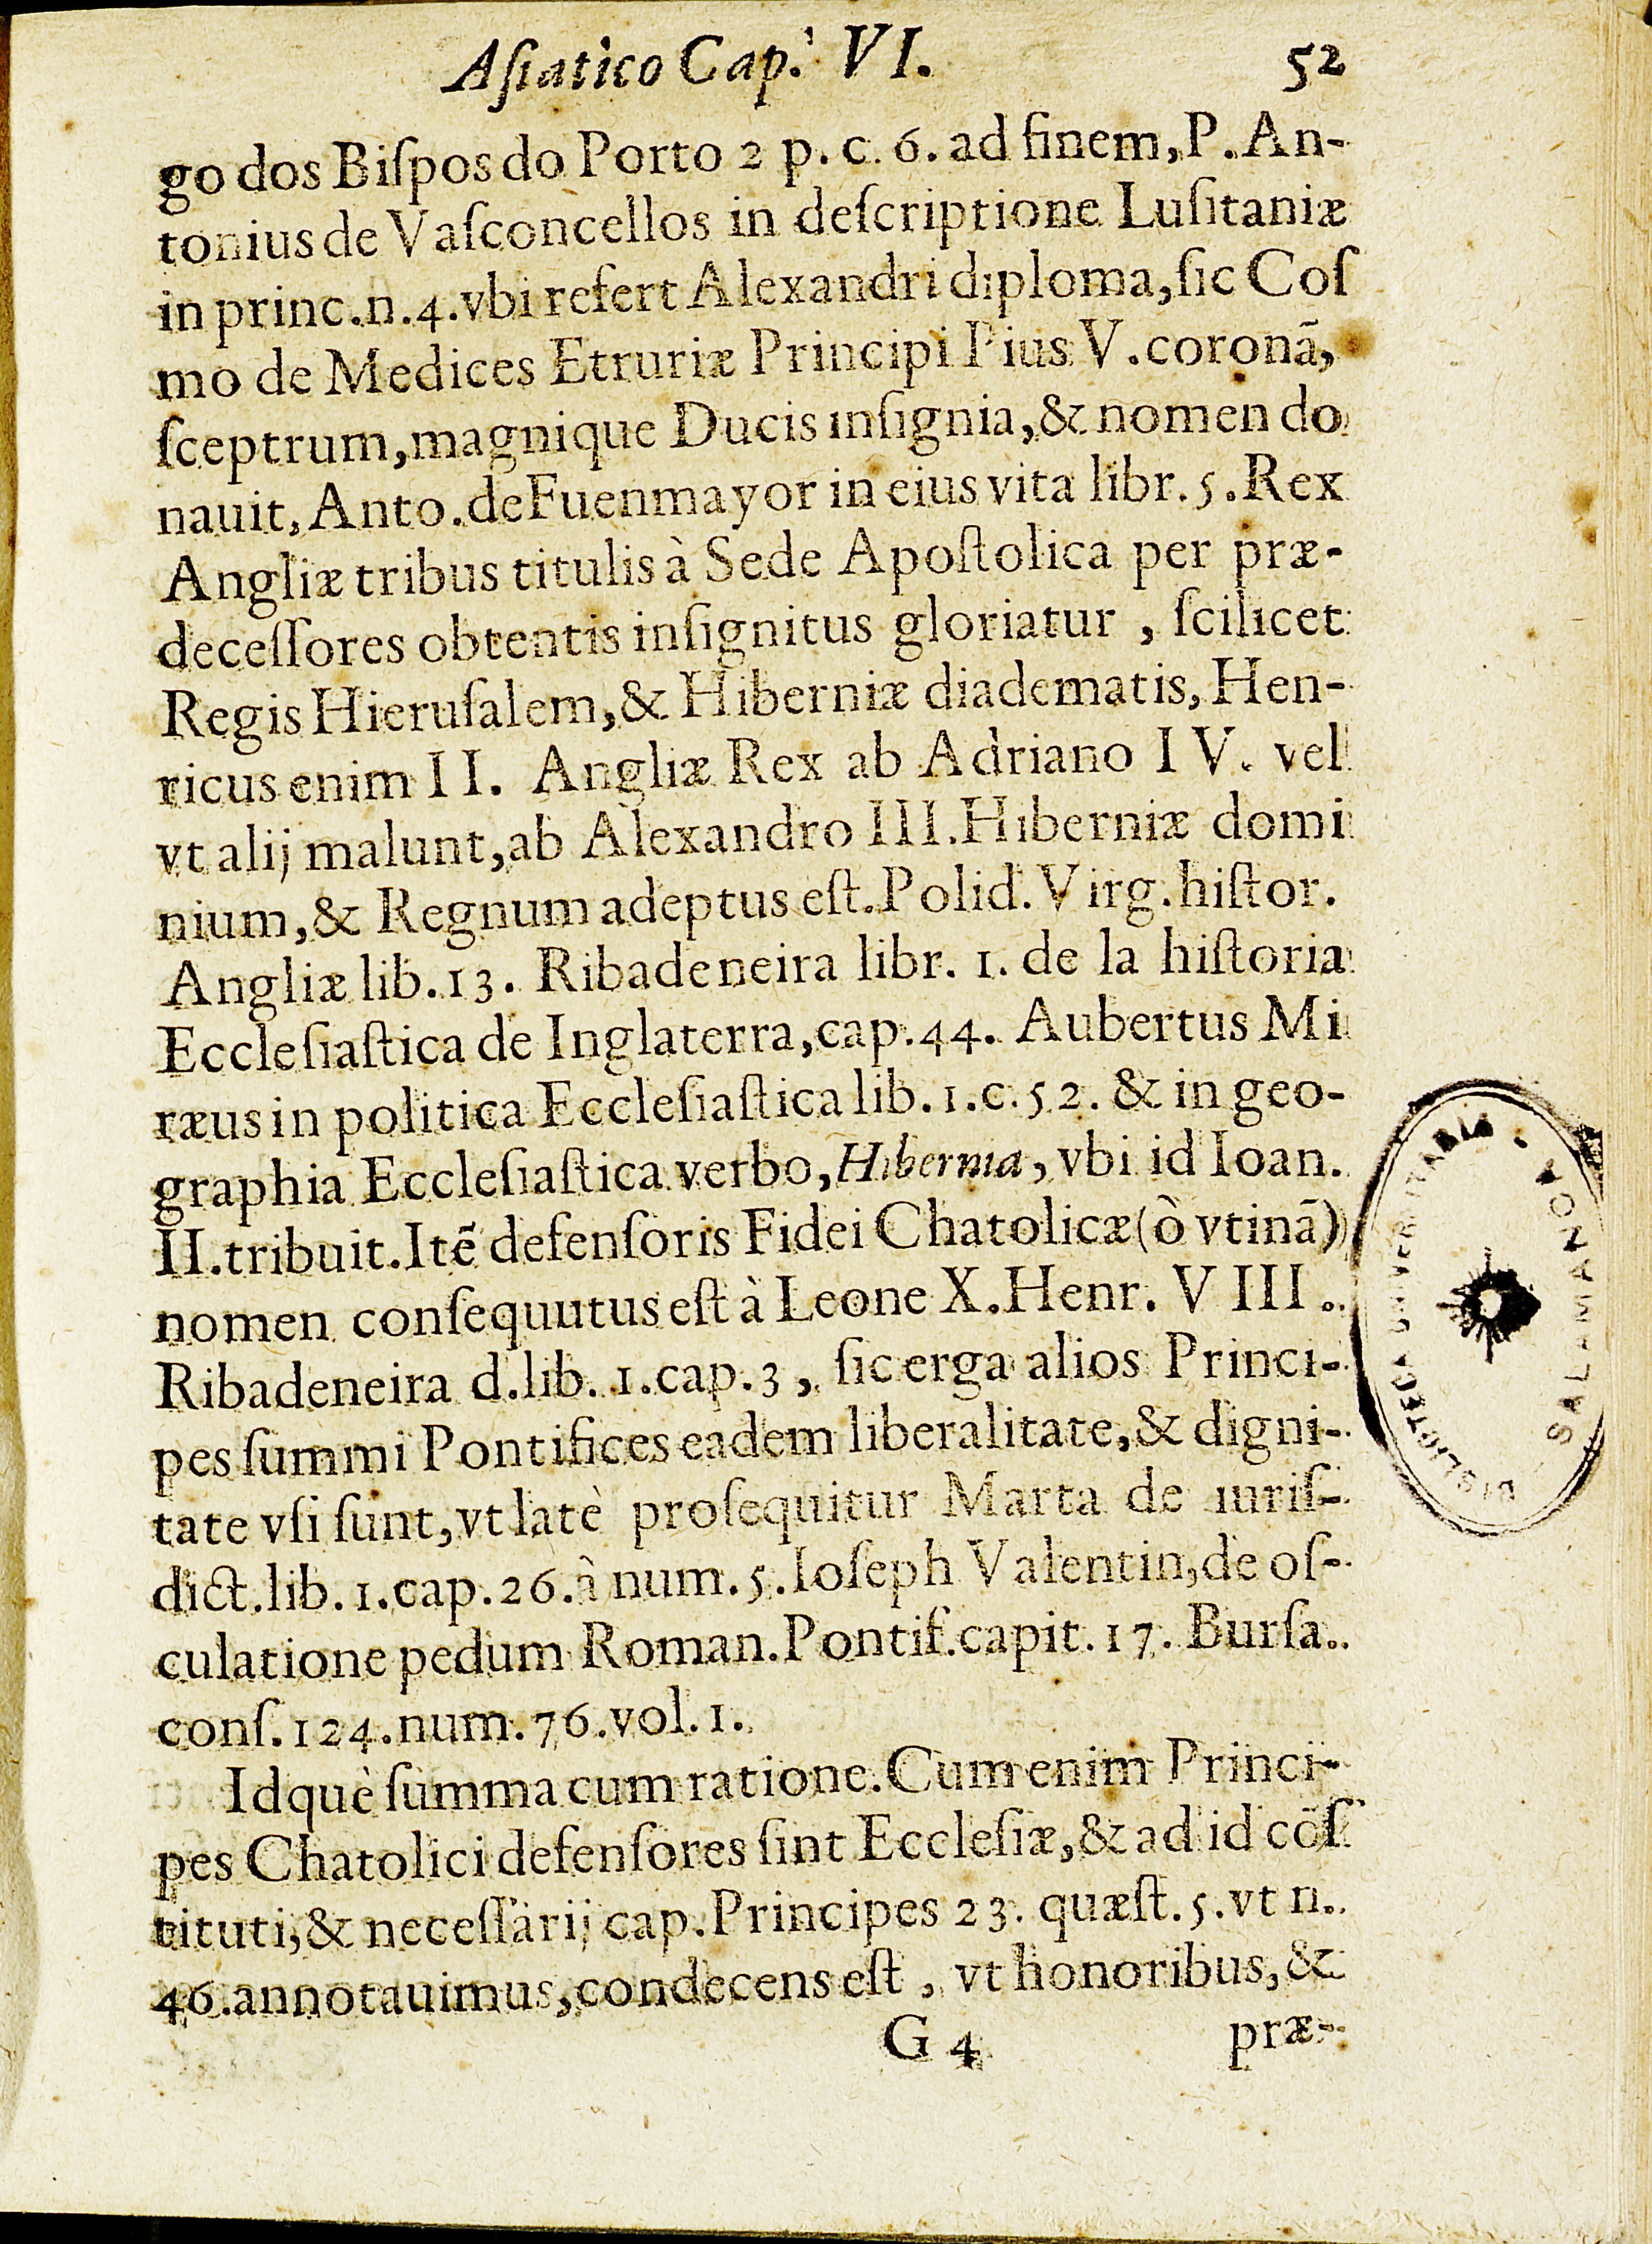 Aſiatico Cap. VI. 52
go dos Biſpos do Porto 2 p. c. 6. ad finem, P. An-
tonius de Vaſconcellos in deſcriptione Luſitaniæ
in princ. n. 4. vbi refert Alexandri diploma, ſic Coſ
mo de Medices Etruriæ Principi Pius V. coronã,
ſceptrum, magnique Ducis inſignia, & nomen do
nauit, Anto. de Fuenmayor in eius vita libr. 5. Rex
Angliæ tribus titulis à Sede Apoſtolica per præ-
deceſſores obtentis inſignitus gloriatur, ſcilicet
Regis Hieruſalem, & Hiberniæ diadematis, Hen-
ricus enim II. Angliæ Rex ab Adriano IV. vel
vt alij malunt, ab Alexandro III. Hiberniæ domi
nium, & Regnum adeptus eſt. Polid. Virg. hiſtor.
Angliæ lib. 13. Ribadeneira libr. 1. de la hiſtoria
Eccleſiaſtica de Inglaterra, cap. 44. Aubertus Mi
ræus in politica Eccleſiaſtica lib. 1. c. 52. & in geo-
graphia Eccleſiaſtica verbo, Hibernia, vbi id Ioan.
II. tribuit. Itẽ defenſoris Fidei Chatolicæ (ò vtinã)
nomen conſequutus eſt à Leone X. Henr. VIII.
Ribadeneira d. lib. 1. cap. 3, ſic erga alios Princi-
pes ſummi Pontifices eadem liberalitate, & digni-
tate vſi ſunt, vt latè proſequitur Marta de iuriſ-
dict. lib. 1. cap. 26. à num. 5. Ioſeph Valentin, de oſ-
culatione pedum Roman. Pontif. capit. 17. Burſa.
conſ. 124. num. 76. vol. 1.
Idquè ſumma cum ratione. Cum enim Princi-
pes Chatolici defenſores ſint Eccleſiæ, & ad id cõſ
tituti, & neceſſarij cap. Principes 23. quæſt. 5. vt n.
46. annotauimus, condecens eſt, vt honoribus, &
G 4 præ-
SALAMANCA